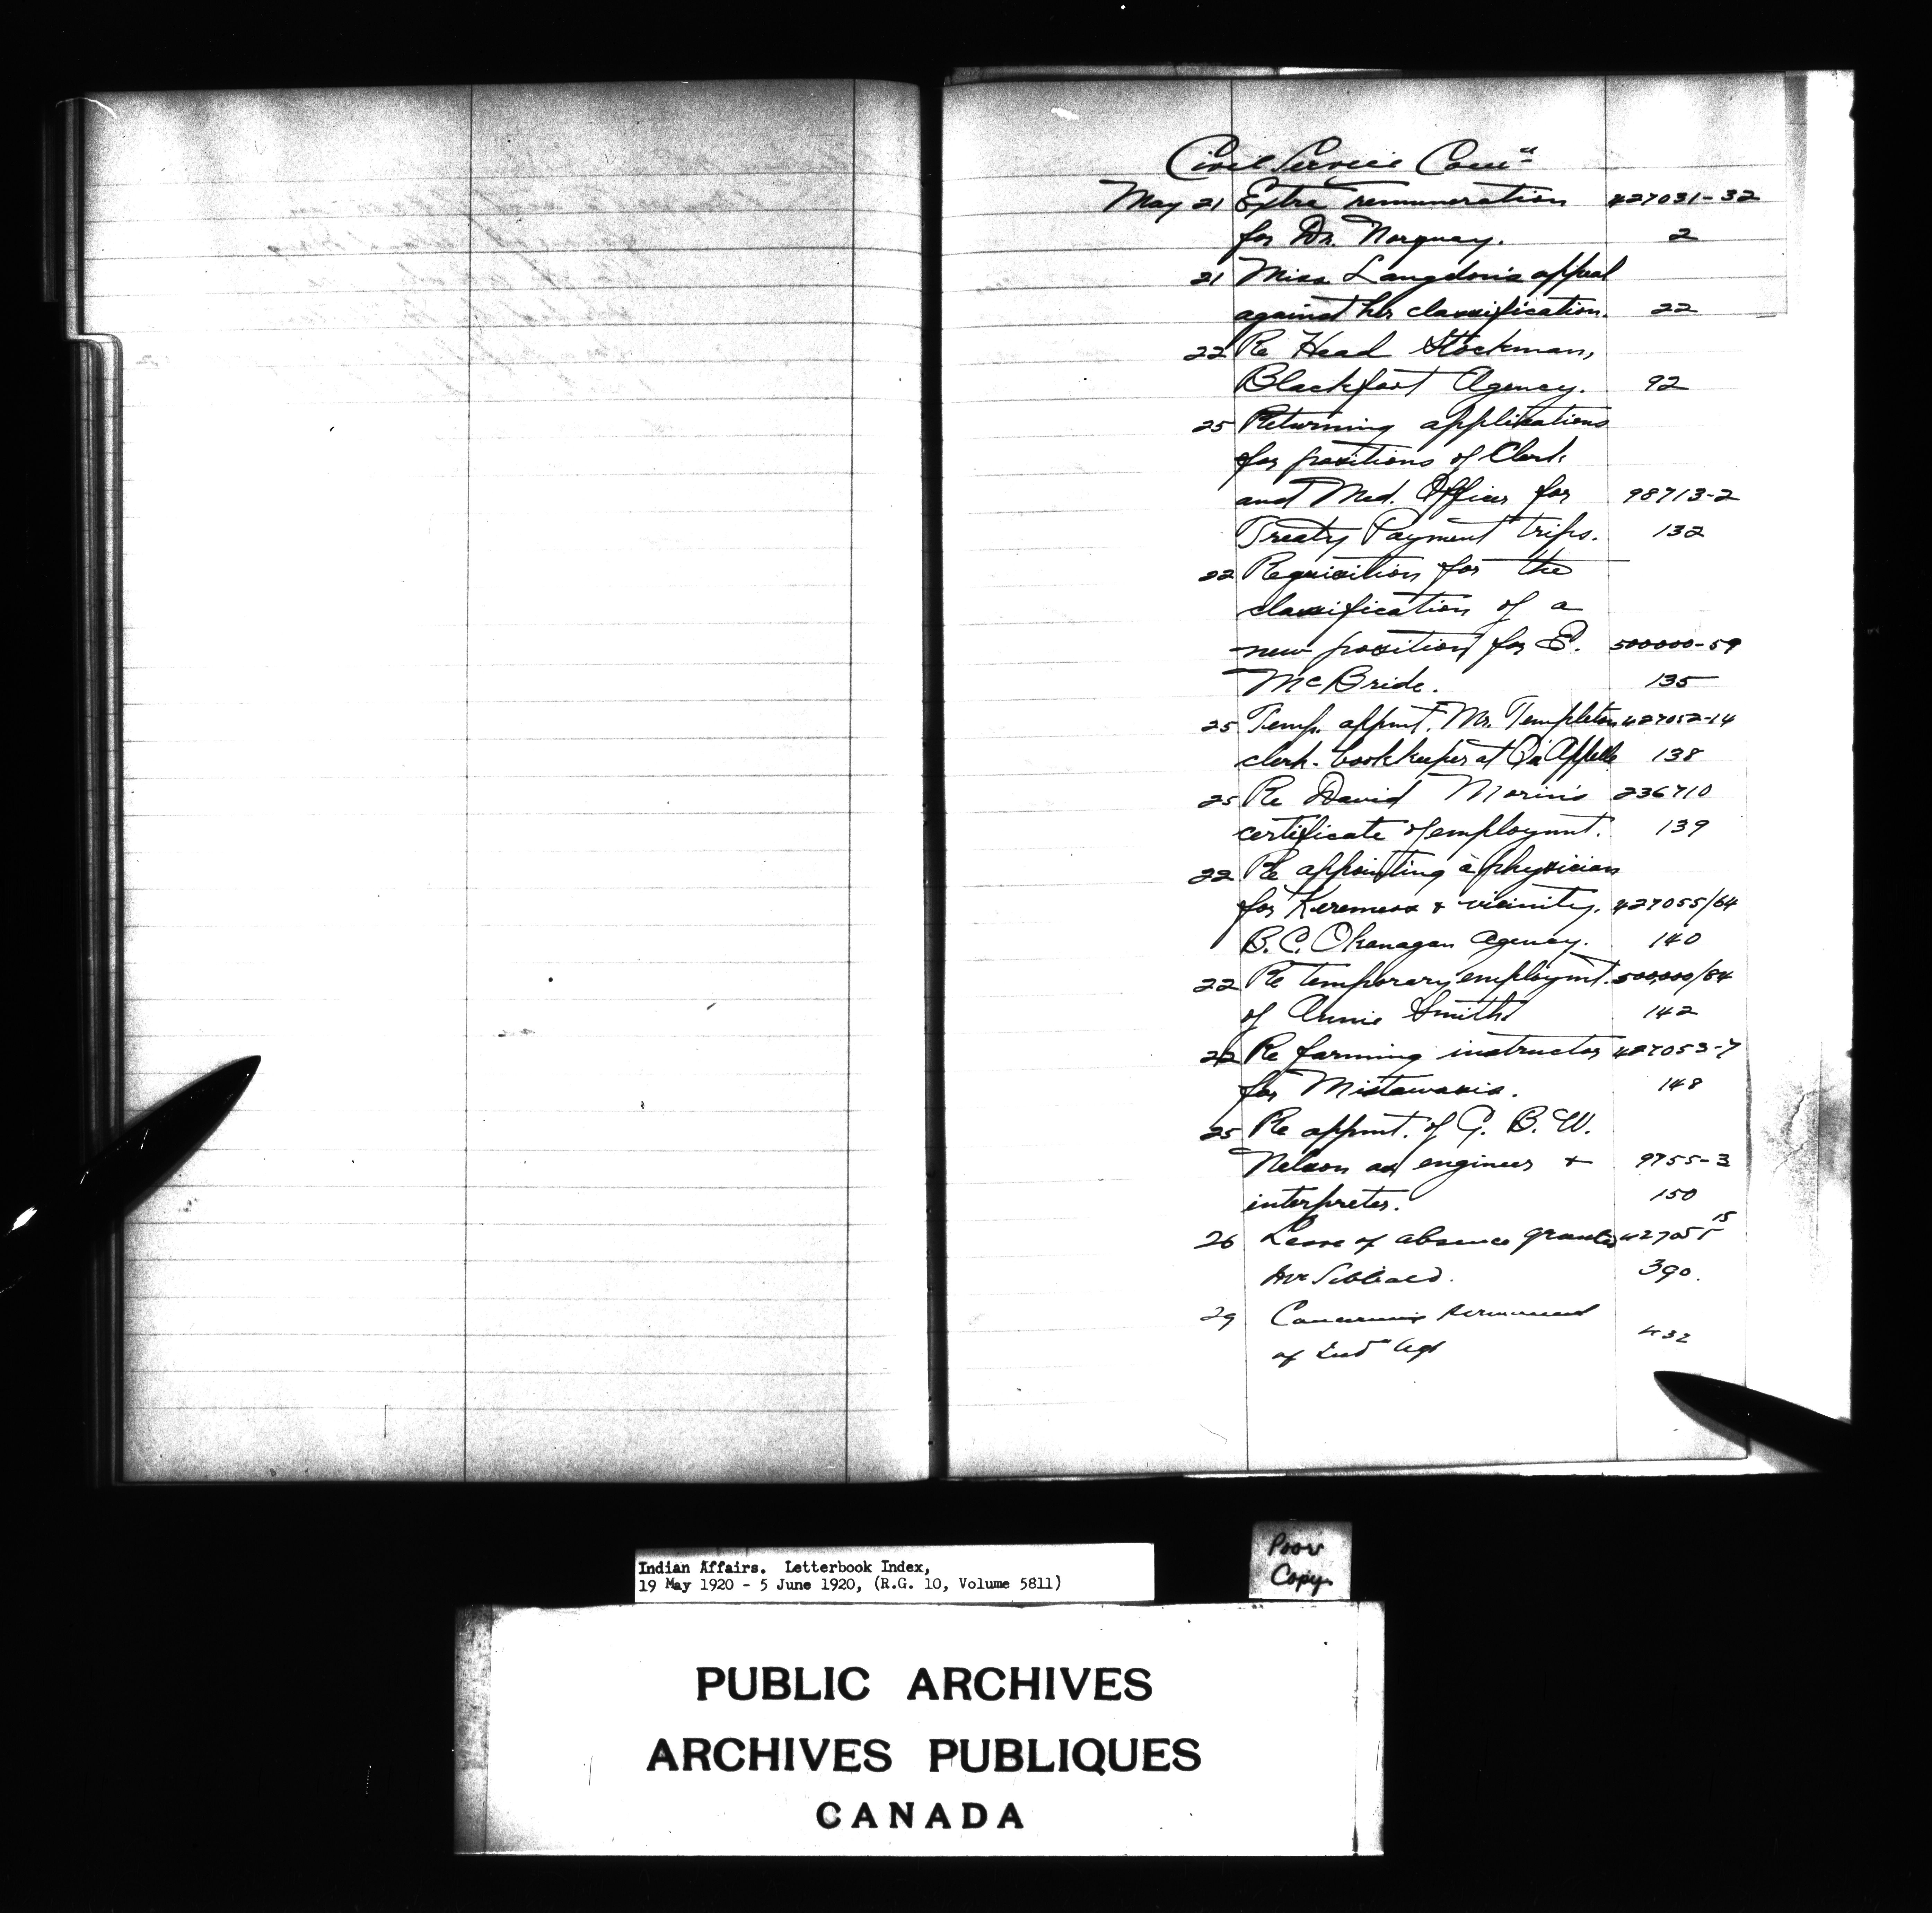 Civil Service Com"
May 21 Extra remuneration 427031-32
for Dr. Norquay. 2
21 Miss Langdon's appeal
against her classification. 22
22 Re Head Stockman,
Blackfoot Agency. 92
25 Returning applications
for positions of Clerk
and Med. Officer for 98713-2
Treaty Payment trips. 132
22 Requisition for the
classification of a
new position for E. 500000-59
McBride. 135
25 Temp. appmt. Mr. Templeton 427052-14
clerk-bookkeeper at Qu'Appelle 138
25 Re David Morin's 236710
certificate of employmnt. 139
22 Re appointing a physician
for Keremeos & vicinity. 427055/64
B.C. Okanagan Agency. 140
22 Re temporary employmt. 500,000/84
of Annie Smith. 142
22 Re farming instructor 427053-7
for Mistawasis. 148
25 Re appmt. of G. B. W.
Nelson as engineer & 9755-3
interpreter. 150
26 Leave of absence granted 427055 15
Mr Sibbald. 390.
29 Concerning
of Ind" Agt 432
Indian Affairs. Letterbook Index,
19 May 1920 - 5 June 1920, (R.G. 10, Volume 5811)
Poor
Copy
PUBLIC ARCHIVES
ARCHIVES PUBLIQUES
CANADA